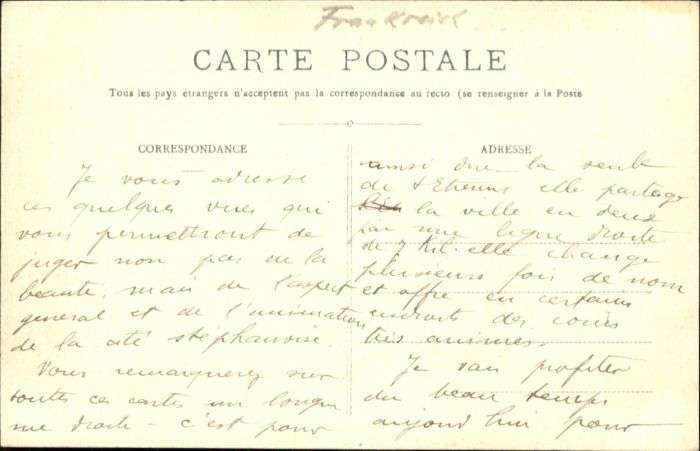 Frankreich
CARTE POSTALE
Tous les pays étrangers n'acceptent pas la correspondance au recto (se renseigner à la Poste
CORRESPONDANCE
Je vous adresse
ces quelques vues qui
vous permettront de
juger non pas de la
beauté, mais de l'aspect
general et de l'animation
de la cité stéphanoise.
Vous remarquerez sur
toutes ces cartes une longue
rue droite - c'est pour
ADRESSE
ainsi dire la seule
de St Etienne elle partage
la ville en deux
par une ligne droite
de 7 kil. elle change
plusieurs fois de nom
et offre en certains
endroits des cours
très animés.
Je vais profiter
du beau temps
aujourd'hui pour